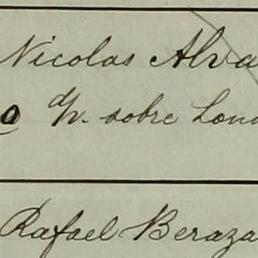 Nicolas Alva
o d/v. sobre Lond
Rafael Beraza